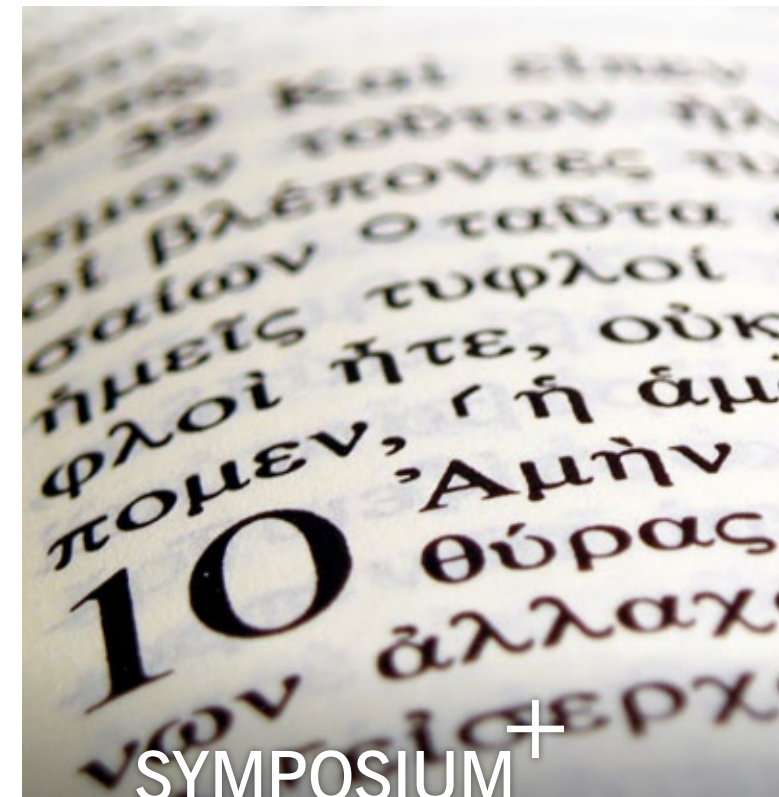 39 Καὶ εἶπεν
τοῦτον
σμον
οἱ βλέποντες
σαίων ⸀ταῦτα
ἡμεῖς τυφλοί
φλοὶ ἦτε, οὐκ
πομεν, ⸂ἡ ἁμ
10 Ἀμὴν
θύρας
ἀλλαχ
νων
εἰσερχ
SYMPOSIUM+